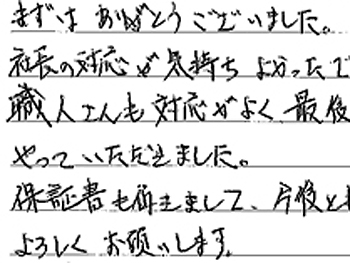 まずは ありがとうございました。
社長の対応が気持ちよかったで
職人さんも対応がよく、最後
やっていただきました。
保証書も頂きまして、今後と
よろしくお願いします。